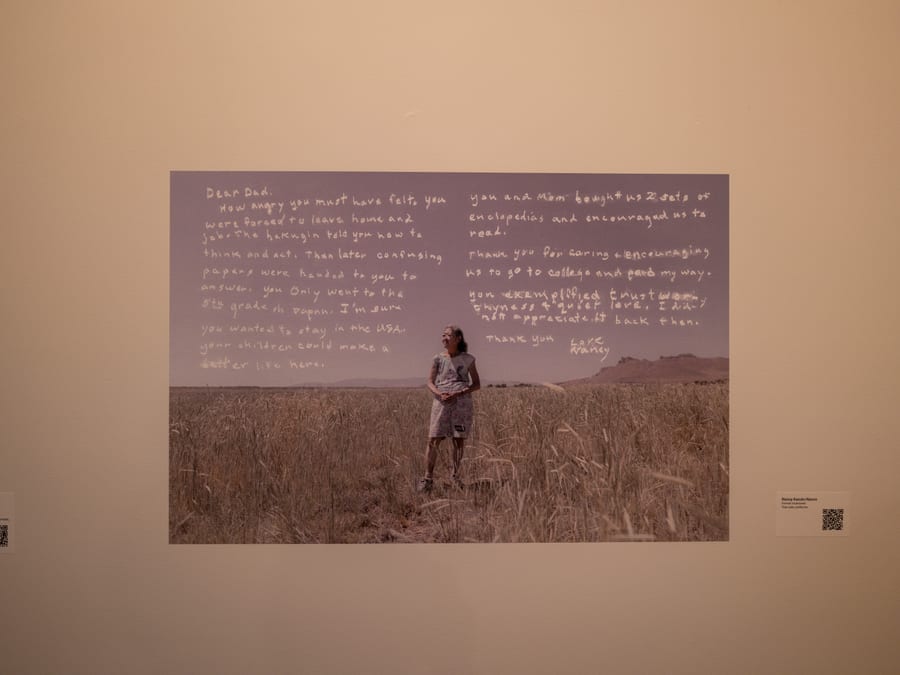 Dear Dad,
How angry you must have felt, you
were forced to leave home and
job. The hakugin told you how to
think and act. Then later confusing
papers were handed to you to
answer. you Only went to the
5th grade in Japan. I'm sure
you wanted to stay in the USA.
your children could make a
better life here.
you and Mom bought us 2 sets of
enclopedias and encouraged us to
read.
Thank you for caring + encouraging
us to go to college and paid my way.
you exemplified trust wor
thyness + quiet love. I did
not appreciate it back then.
Thank you
Love
Nancy